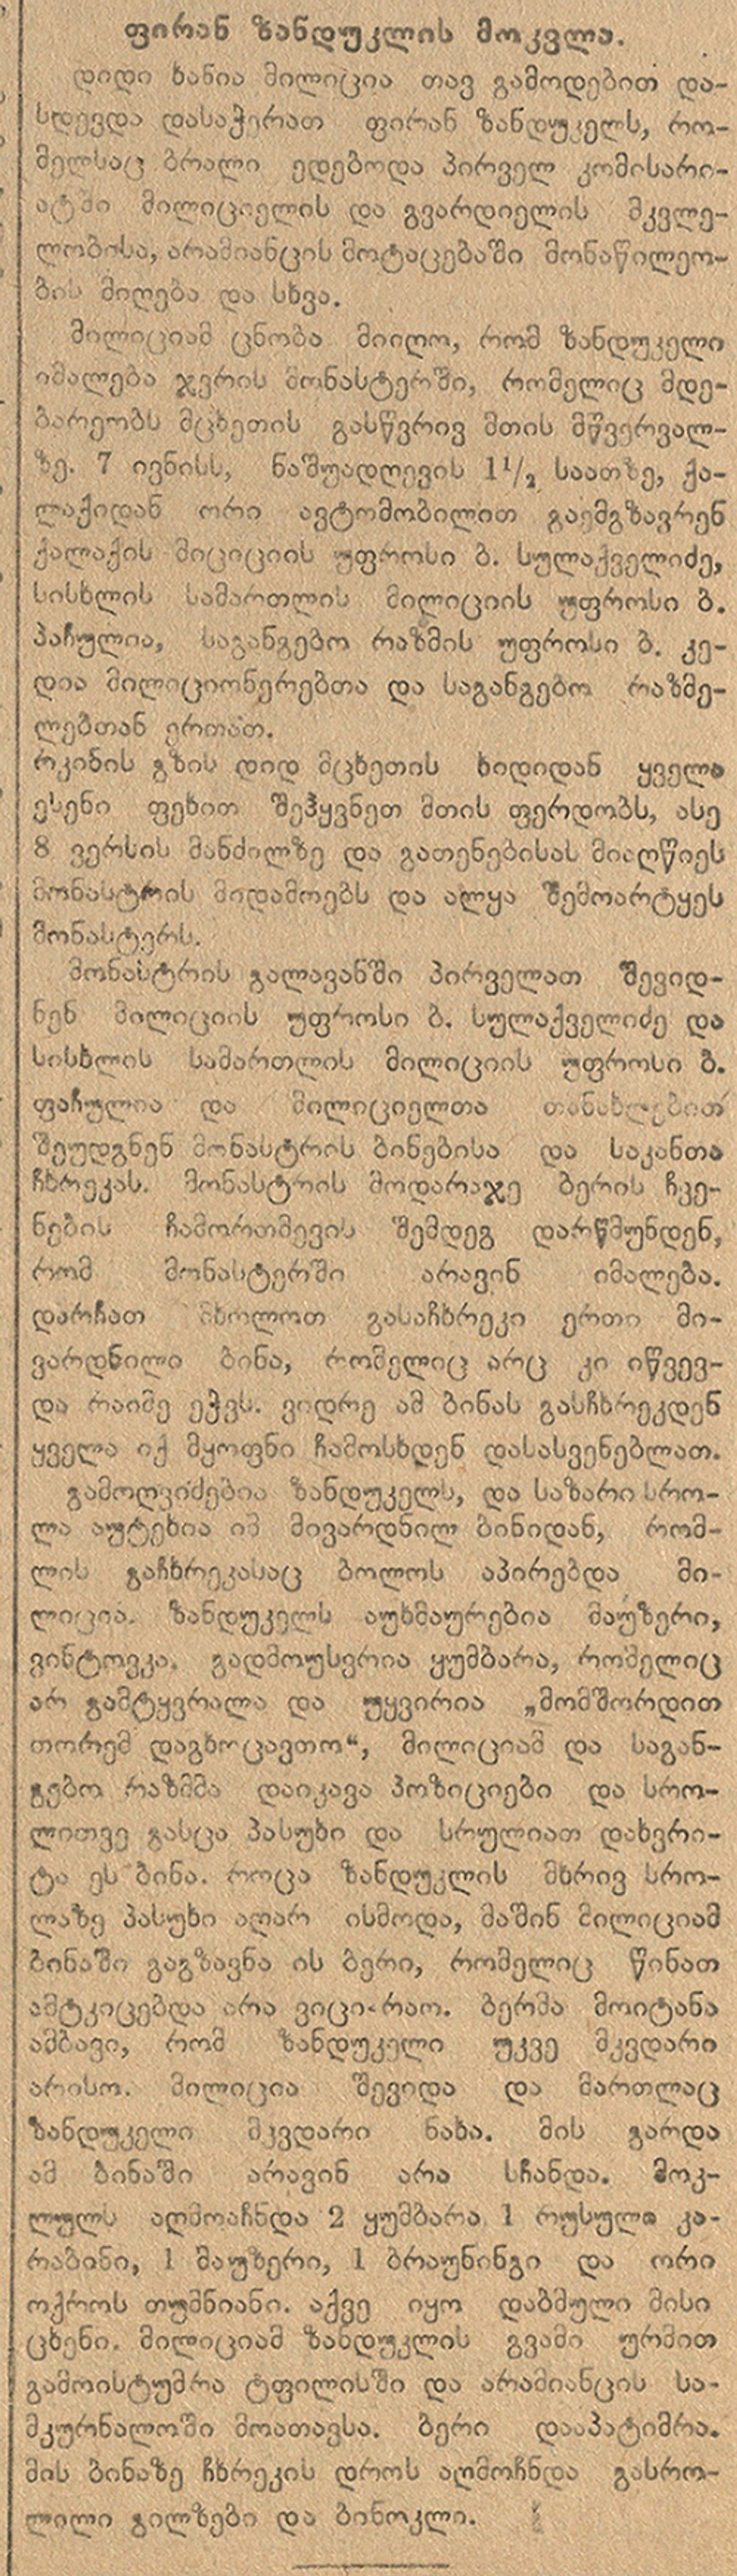 ფირან ზანდუკლის მოკვლა.
დიდი ხანია მილიცია თავ გამოდებით და-
სდევდა დასაჭერათ ფირან ზანდუკელს, რო-
მელსაც ბრალი ედებოდა პირველ კომისარი-
ატში მილიციელის და გვარდიელის მკვლე-
ლობისა, არამიანცის მოტაცებაში მონაწილეო-
ბის მიღება და სხვა.
მილიციამ ცნობა მიიღო, რომ ზანდუკელი
იმალება ჯვრის მონასტერში, რომელიც მდე-
ბარეობს მცხეთის გასწვრივ მთის მწვერვალ-
ზე. 7 ივნისს, ნაშუადღევის 1½ საათზე, ქა-
ლაქიდან ორი ავტომობილით გაემგზავრენ
ქალაქის მიციციის უფროსი ბ. სულაქველიძე,
სისხლის სამართლის მილიციის უფროსი ბ.
პაჩულია, საგანგებო რაზმის უფროსი ბ. კე-
დია მილიციონერებთა და საგანგებო რაზმე-
ლებთან ერთათ.
რკინის გზის დიდ მცხეთის ხიდიდან ყველა
ესენი ფეხით შეჰყვნეთ მთის ფერდობს, ასე
8 ვერსის მანძილზე და გათენებისას მიაღწიეს
მონასტრის მიდამოებს და ალყა შემოარტყეს
მონასტერს.
მონასტრის გალავანში პირველათ შევიდ-
ნენ მილიციის უფროსი ბ. სულაქველიძე და
სისხლის სამართლის მილიციის უფროსი ბ.
ფაჩულია და მილიციელთა თანახლებით
შეუდგნენ მონასტრის ბინებისა და საკანთა
ჩხრეკას. მონასტრის მოდარაჯე ბერის ჩვე-
ნების ჩამორთმევის შემდეგ დარწმუნდენ,
რომ მონასტერში არავინ იმალება.
დარჩათ მხოლოთ გასაჩხრეკი ერთი მი-
ვარდნილი ბინა, რომელიც არც კი იწვევ-
და რაიმე ეჭვს. ვიდრე ამ ბინას გასჩხრეკდენ
ყველა იქ მყოფნი ჩამოსხდენ დასასვენებლათ.
გამოღვიძებია ზანდუკელს, და საზარი სრო-
ლა აუტეხია იმ მივარდნილ ბინიდან, რომ-
ლის გაჩხრეკასაც ბოლოს აპირებდა მი-
ლიცია. ზანდუკელს აუხმაურებია მაუზერი,
ვინტოვკა, გადმოუსვრია ყუმბარა, რომელიც
არ გამტყვრალა და უყვირია „მომშორდით
თორემ დაგხოცავთო“, მილიციამ და საგან-
გებო რაზმმა დაიკავა პოზიციები და სრო-
ლითვე გასცა პასუხი და სრულიათ დახვრი-
ტა ეს ბინა. როცა ზანდუკლის მხრივ სრო-
ლაზე პასუხი აღარ ისმოდა, მაშინ მილიციამ
ბინაში გაგზავნა ის ბერი, რომელიც წინათ
ამტკიცებდა არა ვიცი-რაო. ბერმა მოიტანა
ამბავი, რომ ზანდუკელი უკვე მკვდარი
არისო. მილიცია შევიდა და მართლაც
ზანდუკელი მკვდარი ნახა. მის გარდა
ამ ბინაში არავინ არა სჩანდა. მოკ-
ლულს აღმოაჩნდა 2 ყუმბარა 1 რუსული კა-
რაბინი, 1 მაუზერი, 1 ბრაუნინგი და ორი
ოქროს თუმნიანი. აქვე იყო დაბმული მისი
ცხენი. მილიციამ ზანდუკლის გვამი ურმით
გამოისტუმრა ტფილისში და არამიანცის სა-
მკურნალოში მოათავსა. ბერი დააპატიმრა.
მის ბინაზე ჩხრეკის დროს აღმოჩნდა გასრო-
ლილი გილზები და ბინოკლი.